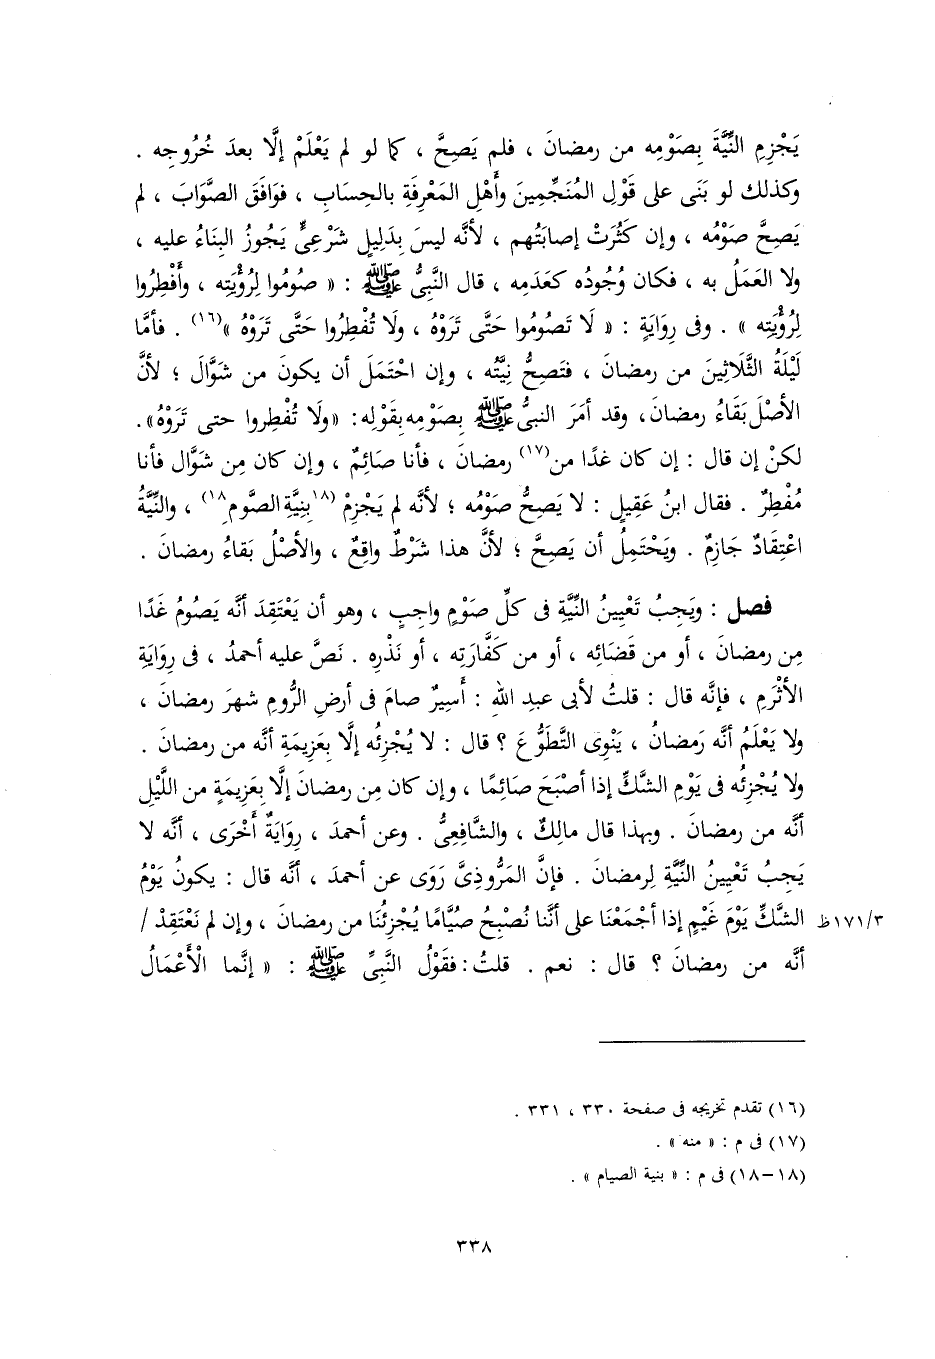 يَجْزِمِ النِّيَّةَ بِصَوْمِه من رمضانَ ، فلم يَصِحَّ ، كما لو لم يَعْلَمْ إلَّا بعدَ خُرُوجِه .
وكذلك لو بَنَى على قَوْلِ المُنَجِّمِينَ وأهْلِ المَعْرِفَةِ بالحِسَابِ ، فوَافَقَ الصَّوَابَ ، لم
يَصِحَّ صَوْمُه ، وإن كَثُرَتْ إصابَتُهم ، لأنَّه ليسَ بِدَلِيلٍ شَرْعِىٍّ يَجُوزُ البِنَاءُ عليه ،
ولا العَمَلُ به ، فكان وُجُودُه كعَدَمِه ، قال النَّبِىُّ ﷺ : « صُومُوا لِرُؤْيَتِه ، وأَفْطِرُوا
لِرُؤْيَتِه » . وفى رِوَايَةٍ : « لَا تَصُومُوا حَتَّى تَرَوْهُ ، ولَا تُفْطِرُوا حَتَّى تَرَوْهُ »(١٦) . فأمَّا
لَيْلَةُ الثَّلَاثِينَ من رمضانَ ، فتَصِحُّ نِيَّتُه ، وإن احْتَمَلَ أن يكونَ من شَوَّالَ ؛ لأنَّ
الأصْلَ بَقَاءُ رمضانَ، وقد أمَرَ النبىُّ ﷺ بِصَوْمِه بقَوْلِه: «ولَا تُفْطِروا حتى تَرَوْهُ».
لكنْ إن قال : إن كان غدًا من(١٧) رمضانَ ، فأنا صَائِمٌ ، وإن كان مِن شَوَّال فأنا
مُفْطِرٌ . فقال ابنُ عَقِيلٍ : لا يَصِحُّ صَوْمُه ؛ لأنَّه لم يَجْزِمْ (١٨بِنِيَّةِ الصَّوْمِ١٨) ، والنِّيَّةُ
اعْتِقَادٌ جَازِمٌ . ويَحْتَمِلُ أن يَصِحَّ ؛ لأنَّ هذا شَرْطٌ واقِعٌ ، والأصْلُ بَقاءُ رمضانَ .
فصل : ويَجِبُ تَعْيِينُ النِّيَّةِ فى كلِّ صَوْمٍ واجِبٍ ، وهو أن يَعْتَقِدَ أنَّه يَصُومُ غَدًا
مِن رمضانَ ، أو من قَضَائِه ، أو من كَفَّارَتِه ، أو نَذْرِه . نَصَّ عليه أحمدُ ، فى رِوَايَةِ
الأثْرَمِ ، فإنَّه قال : قلتُ لأبى عبدِ اللهِ : أَسِيرٌ صامَ فى أرضِ الرُّومِ شهرَ رمضانَ ،
ولا يَعْلَمُ أنَّه رَمضانُ ، يَنْوِى التَّطَوُّعَ ؟ قال : لا يُجْزِئُه إلَّا بِعَزِيمَةِ أنَّه من رمضانَ .
ولا يُجْزِئُه فى يَوْمِ الشَّكِّ إذا أصْبَحَ صَائِمًا ، وإن كان مِن رمضانَ إلَّا بِعَزِيمَةٍ من اللَّيْلِ
أنَّه من رمضانَ . وبهذا قال مالِكٌ ، والشَّافِعِىُّ . وعن أحمدَ ، رِوَايَةٌ أُخْرَى ، أنَّه لا
يَجِبُ تَعْيِينُ النِّيَّةِ لِرمضانَ . فإنَّ المَرُّوذِىَّ رَوَى عن أحمدَ ، أنَّه قال : يكونُ يَوْمُ
الشَّكِّ يَوْمَ غَيْمٍ إذا أجْمَعْنَا على أنَّنا نُصْبِحُ صُيَّامًا يُجْزِئُنَا من رمضانَ ، وإن لم نَعْتَقِدْ / ١٧١/٣ظ
أنَّه من رمضانَ ؟ قال : نعم . قلتُ : فقَوْلُ النَّبِىِّ ﷺ : « إنَّما الْأَعْمَالُ
(١٦) تقدم تخريجه فى صفحة ٣٣٠ ، ٣٣١ .
(١٧) فى م : « منه » .
(١٨–١٨) فى م : « بنية الصيام » .
٣٣٨